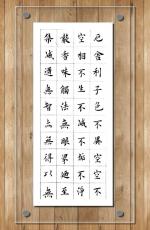 舍利子色不異空空不
空相不生不滅不垢不淨
香味觸法無眼界至
集滅道無智亦無得以無